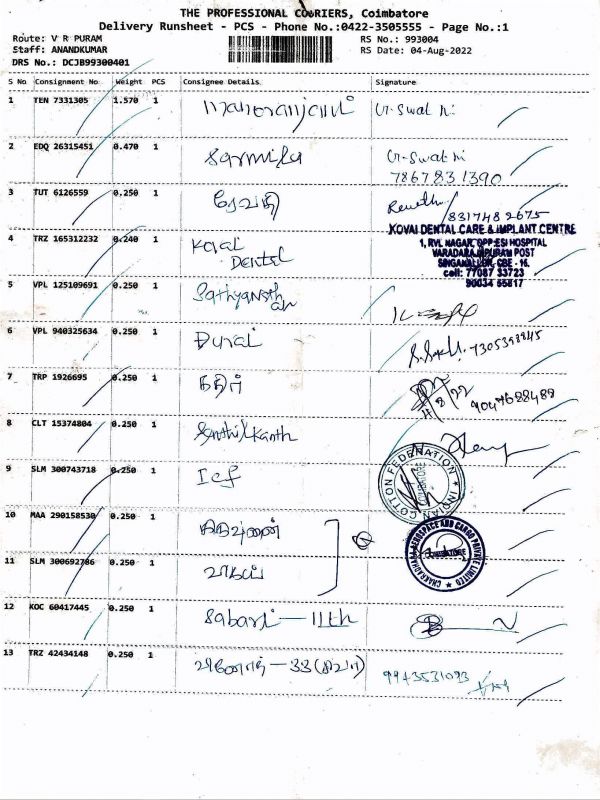 THE PROFESSIONAL COURIERS, Coimbatore
Delivery Runsheet - PCS - Phone No.:0422-3505555 - Page No.:1
Route: V R PURAM
RS No.: 993004
Staff: ANANDKUMAR
RS Date: 04-Aug-2022
DRS No.: DCJB99300401
S No Consignment No Weight PCS Consignee Details Signature
1 TEN 7331305 1.570 1
2 EDQ 26315451 0.470 1 Sarmila
7867831390
3 TUT 6126559 0.250 1 ரேவதி Revathi
8317482675
4 TRZ 165312232 0.240 1 Kovai
Dental
KOVAI DENTAL CARE & IMPLANT CENTRE
1, RVL NAGAR, OPP:ESI HOSPITAL
VARADARAJAPURAM POST
SINGANALLUR, CBE - 15.
cell: 77087 33723
5 VPL 125109691 0.250 1
6 VPL 940325634 0.250 1 Durai 7305398945
7 TRP 1926695 0.250 1 கதிர் 4/8/22 9047688488
8 CLT 15374804 0.250 1 Senthilkanth
9 SLM 300743718 0.250 1 Icf
INDIAN COTTON FEDERATION
10 MAA 290158530 0.250 1
CHAKRADHARA AEROSPACE AND CARGO PRIVATE LIMITED
COIMBATORE
11 SLM 300692786 0.250 1
12 KOC 60417445 0.250 1 Sabari - 11th
13 TRZ 42434148 0.250 1 9943531093